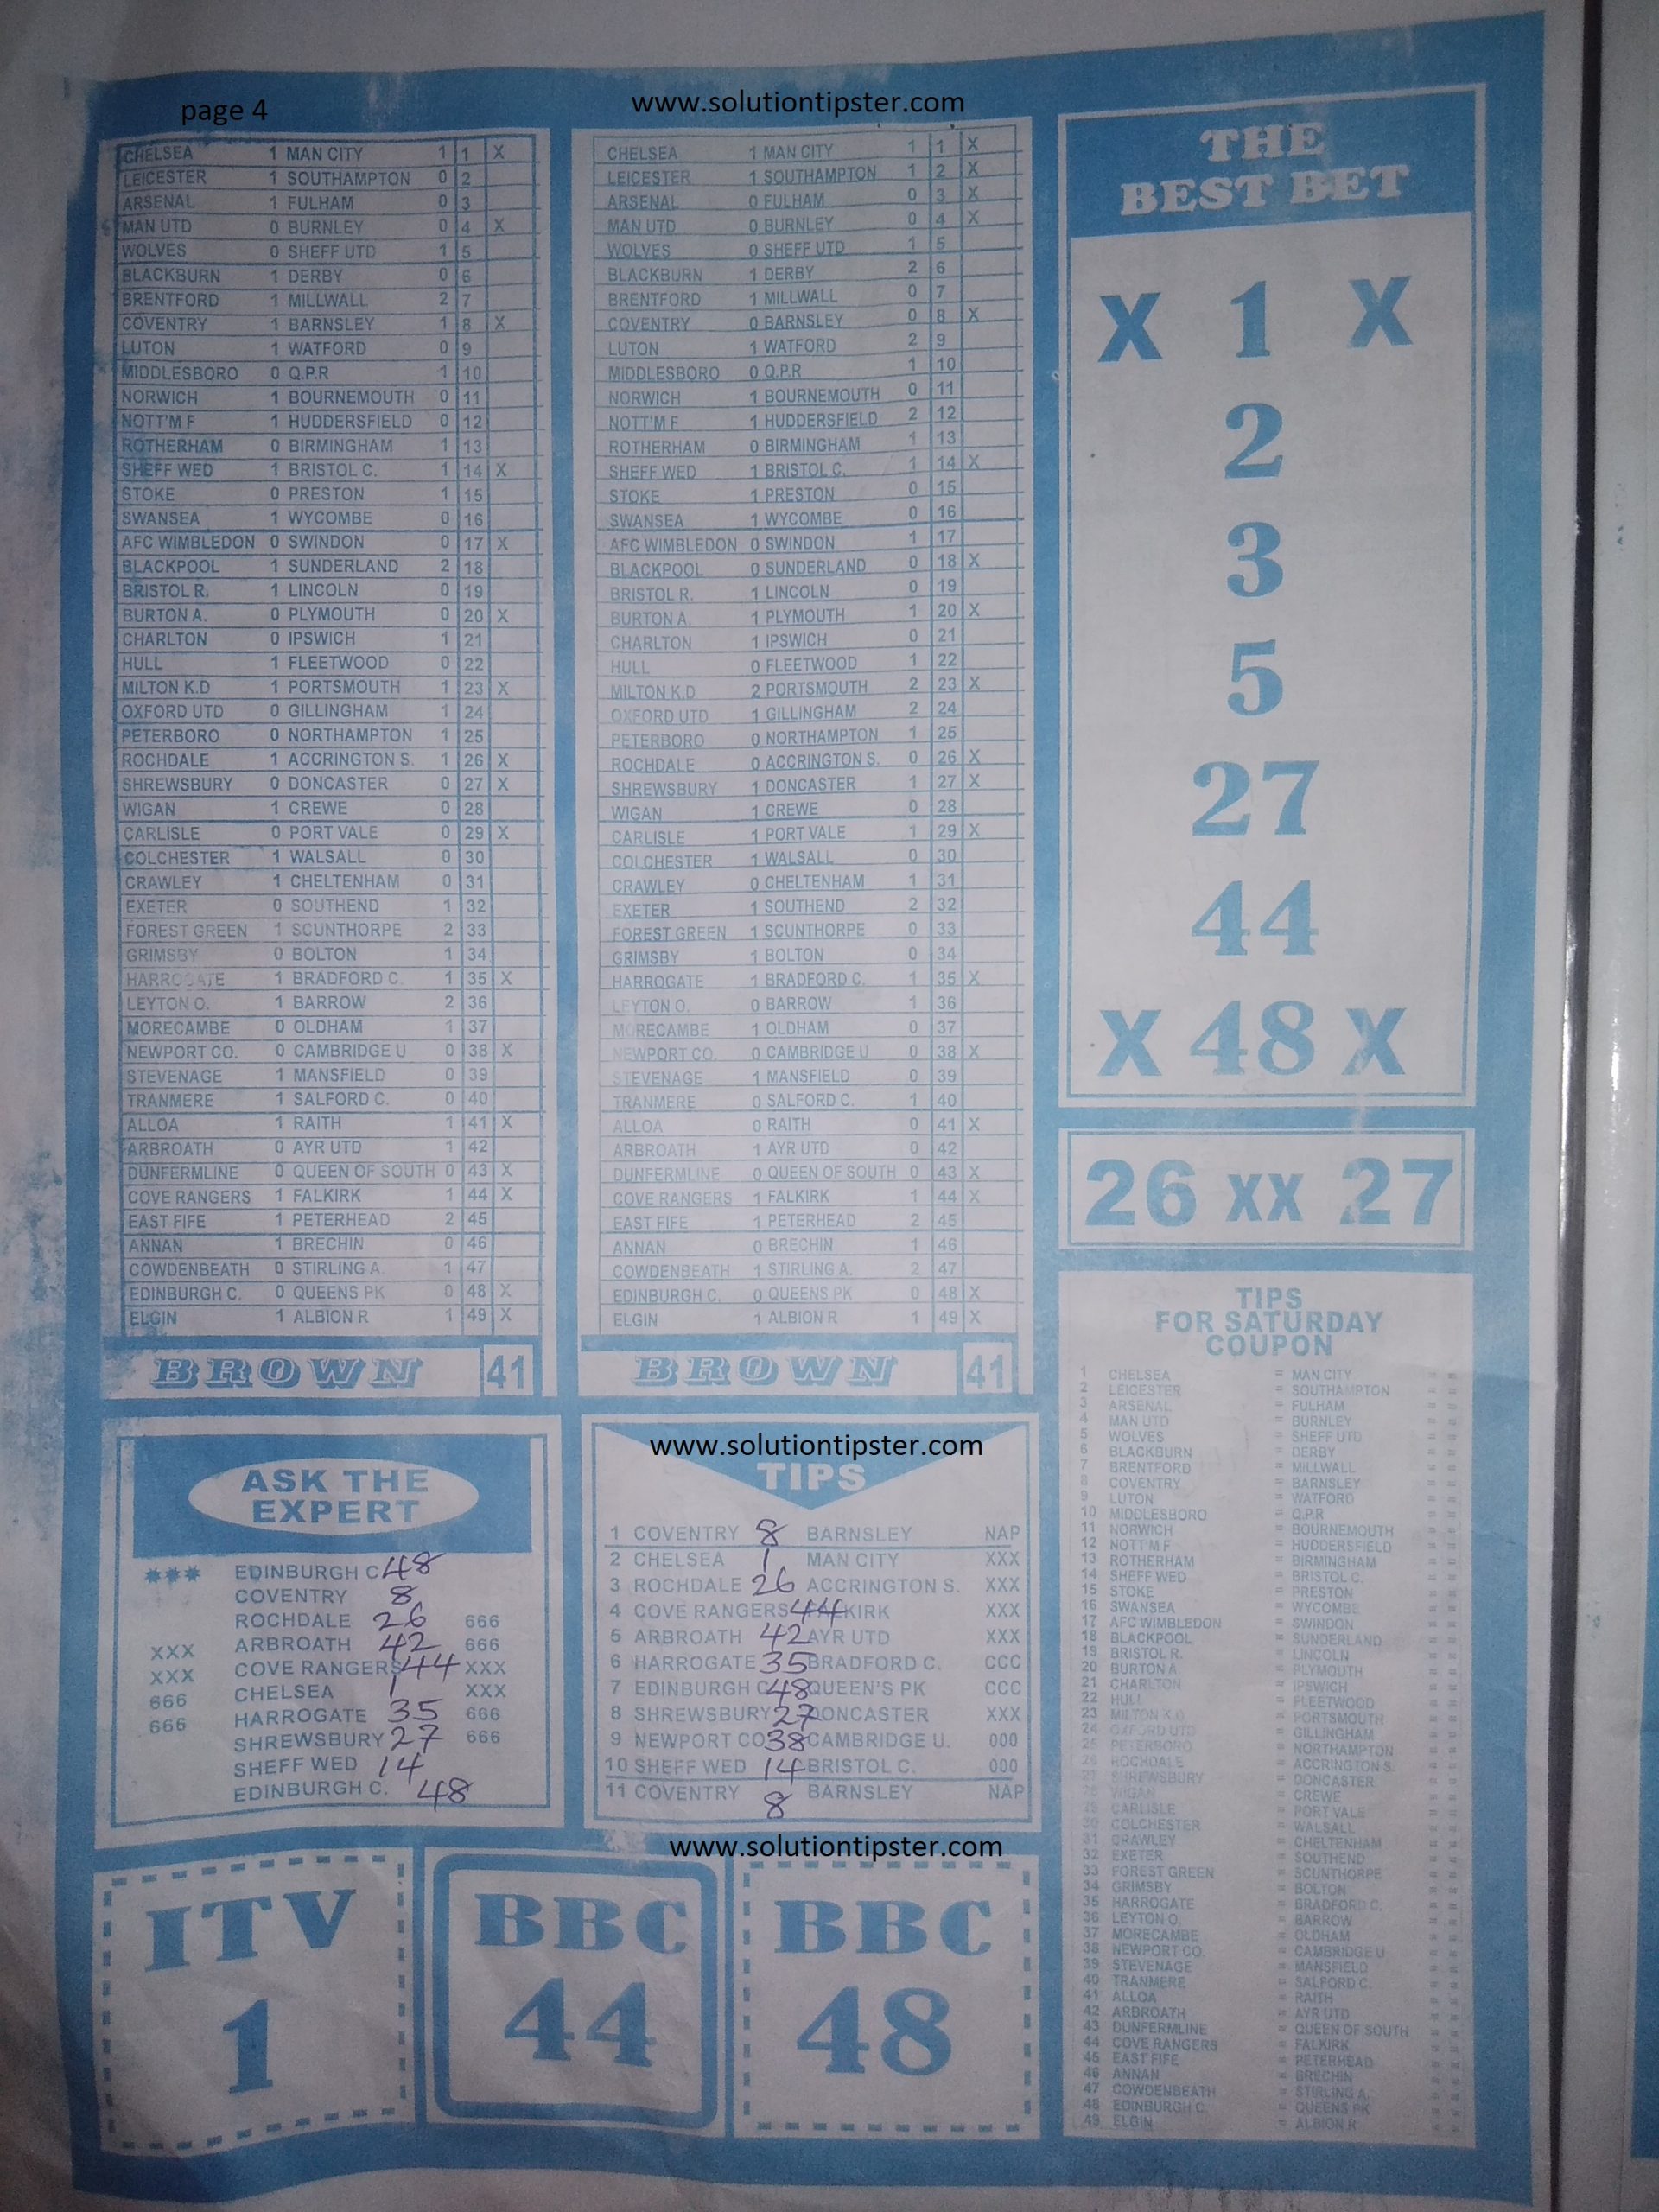 page 4
www.solutiontipster.com
CHELSEA 1 MAN CITY 1 1 X
LEICESTER 1 SOUTHAMPTON 0 2
ARSENAL 1 FULHAM 0 3
MAN UTD 0 BURNLEY 0 4 X
WOLVES 0 SHEFF UTD 1 5
BLACKBURN 1 DERBY 0 6
BRENTFORD 1 MILLWALL 2 7
COVENTRY 1 BARNSLEY 1 8 X
LUTON 1 WATFORD 0 9
MIDDLESBORO 0 Q.P.R 1 10
NORWICH 1 BOURNEMOUTH 0 11
NOTT'M F 1 HUDDERSFIELD 0 12
ROTHERHAM 0 BIRMINGHAM 1 13
SHEFF WED 1 BRISTOL C. 1 14 X
STOKE 0 PRESTON 1 15
SWANSEA 1 WYCOMBE 0 16
AFC WIMBLEDON 0 SWINDON 0 17 X
BLACKPOOL 1 SUNDERLAND 2 18
BRISTOL R. 1 LINCOLN 0 19
BURTON A. 0 PLYMOUTH 0 20 X
CHARLTON 0 IPSWICH 1 21
HULL 1 FLEETWOOD 0 22
MILTON K.D 1 PORTSMOUTH 1 23 X
OXFORD UTD 0 GILLINGHAM 1 24
PETERBORO 0 NORTHAMPTON 1 25
ROCHDALE 1 ACCRINGTON S. 1 26 X
SHREWSBURY 0 DONCASTER 0 27 X
WIGAN 1 CREWE 0 28
CARLISLE 0 PORT VALE 0 29 X
COLCHESTER 1 WALSALL 0 30
CRAWLEY 1 CHELTENHAM 0 31
EXETER 0 SOUTHEND 1 32
FOREST GREEN 1 SCUNTHORPE 2 33
GRIMSBY 0 BOLTON 1 34
HARROGATE 1 BRADFORD C. 1 35 X
LEYTON O. 1 BARROW 2 36
MORECAMBE 0 OLDHAM 1 37
NEWPORT CO. 0 CAMBRIDGE U 0 38 X
STEVENAGE 1 MANSFIELD 0 39
TRANMERE 1 SALFORD C. 0 40
ALLOA 1 RAITH 1 41 X
ARBROATH 0 AYR UTD 1 42
DUNFERMLINE 0 QUEEN OF SOUTH 0 43 X
COVE RANGERS 1 FALKIRK 1 44 X
EAST FIFE 1 PETERHEAD 2 45
ANNAN 1 BRECHIN 0 46
COWDENBEATH 0 STIRLING A. 1 47
EDINBURGH C. 0 QUEENS PK 0 48 X
ELGIN 1 ALBION R 1 49 X
BROWN 41
CHELSEA 1 MAN CITY 1 1 X
LEICESTER 1 SOUTHAMPTON 1 2 X
ARSENAL 0 FULHAM 0 3 X
MAN UTD 0 BURNLEY 0 4 X
WOLVES 0 SHEFF UTD 1 5
BLACKBURN 1 DERBY 2 6
BRENTFORD 1 MILLWALL 0 7
COVENTRY 0 BARNSLEY 0 8 X
LUTON 1 WATFORD 2 9
MIDDLESBORO 0 Q.P.R 1 10
NORWICH 1 BOURNEMOUTH 0 11
NOTT'M F 1 HUDDERSFIELD 2 12
ROTHERHAM 0 BIRMINGHAM 1 13
SHEFF WED 1 BRISTOL C. 1 14 X
STOKE 1 PRESTON 0 15
SWANSEA 1 WYCOMBE 0 16
AFC WIMBLEDON 0 SWINDON 1 17
BLACKPOOL 0 SUNDERLAND 0 18 X
BRISTOL R. 1 LINCOLN 0 19
BURTON A. 1 PLYMOUTH 1 20 X
CHARLTON 1 IPSWICH 0 21
HULL 0 FLEETWOOD 1 22
MILTON K.D 2 PORTSMOUTH 2 23 X
OXFORD UTD 1 GILLINGHAM 2 24
PETERBORO 0 NORTHAMPTON 1 25
ROCHDALE 0 ACCRINGTON S. 0 26 X
SHREWSBURY 1 DONCASTER 1 27 X
WIGAN 1 CREWE 0 28
CARLISLE 1 PORT VALE 1 29 X
COLCHESTER 1 WALSALL 0 30
CRAWLEY 0 CHELTENHAM 1 31
EXETER 1 SOUTHEND 2 32
FOREST GREEN 1 SCUNTHORPE 0 33
GRIMSBY 1 BOLTON 0 34
HARROGATE 1 BRADFORD C. 1 35 X
LEYTON O. 0 BARROW 1 36
MORECAMBE 1 OLDHAM 0 37
NEWPORT CO. 0 CAMBRIDGE U 0 38 X
STEVENAGE 1 MANSFIELD 0 39
TRANMERE 0 SALFORD C. 1 40
ALLOA 0 RAITH 0 41 X
ARBROATH 1 AYR UTD 0 42
DUNFERMLINE 0 QUEEN OF SOUTH 0 43 X
COVE RANGERS 1 FALKIRK 1 44 X
EAST FIFE 1 PETERHEAD 2 45
ANNAN 0 BRECHIN 1 46
COWDENBEATH 1 STIRLING A. 2 47
EDINBURGH C. 0 QUEENS PK 0 48 X
ELGIN 1 ALBION R 1 49 X
BROWN 41
THE
BEST BET
X 1 X
2
3
5
27
44
X 48 X
26 XX 27
ASK THE
EXPERT
*** EDINBURGH C 48
COVENTRY 8
ROCHDALE 26 666
XXX ARBROATH 42 666
XXX COVE RANGERS 44 XXX
666 CHELSEA 1 XXX
666 HARROGATE 35 666
SHREWSBURY 27 666
SHEFF WED 14
EDINBURGH C. 48
www.solutiontipster.com
TIPS
1 COVENTRY 8 BARNSLEY NAP
2 CHELSEA 1 MAN CITY XXX
3 ROCHDALE 26 ACCRINGTON S. XXX
4 COVE RANGERS 44 KIRK XXX
5 ARBROATH 42 AYR UTD XXX
6 HARROGATE 35 BRADFORD C. CCC
7 EDINBURGH C 48 QUEEN'S PK CCC
8 SHREWSBURY 27 DONCASTER XXX
9 NEWPORT CO 38 CAMBRIDGE U. 000
10 SHEFF WED 14 BRISTOL C. 000
11 COVENTRY 8 BARNSLEY NAP
www.solutiontipster.com
ITV
1
BBC
44
BBC
48
TIPS
FOR SATURDAY
COUPON
1 CHELSEA = MAN CITY = =
2 LEICESTER = SOUTHAMPTON = =
3 ARSENAL = FULHAM = =
4 MAN UTD = BURNLEY = =
5 WOLVES = SHEFF UTD = =
6 BLACKBURN = DERBY = =
7 BRENTFORD = MILLWALL = =
8 COVENTRY = BARNSLEY = =
9 LUTON = WATFORD = =
10 MIDDLESBORO = Q.P.R = =
11 NORWICH = BOURNEMOUTH = =
12 NOTT'M F = HUDDERSFIELD = =
13 ROTHERHAM = BIRMINGHAM = =
14 SHEFF WED = BRISTOL C. = =
15 STOKE = PRESTON = =
16 SWANSEA = WYCOMBE = =
17 AFC WIMBLEDON = SWINDON = =
18 BLACKPOOL = SUNDERLAND = =
19 BRISTOL R. = LINCOLN = =
20 BURTON A = PLYMOUTH = =
21 CHARLTON = IPSWICH = =
22 HULL = FLEETWOOD = =
23 MILTON K.D = PORTSMOUTH = =
24 OXFORD UTD = GILLINGHAM = =
25 PETERBORO = NORTHAMPTON = =
26 ROCHDALE = ACCRINGTON S. = =
27 SHREWSBURY = DONCASTER = =
28 WIGAN = CREWE = =
29 CARLISLE = PORT VALE = =
30 COLCHESTER = WALSALL = =
31 CRAWLEY = CHELTENHAM = =
32 EXETER = SOUTHEND = =
33 FOREST GREEN = SCUNTHORPE = =
34 GRIMSBY = BOLTON = =
35 HARROGATE = BRADFORD C. = =
36 LEYTON O. = BARROW = =
37 MORECAMBE = OLDHAM = =
38 NEWPORT CO. = CAMBRIDGE U = =
39 STEVENAGE = MANSFIELD = =
40 TRANMERE = SALFORD C. = =
41 ALLOA = RAITH = =
42 ARBROATH = AYR UTD = =
43 DUNFERMLINE = QUEEN OF SOUTH = =
44 COVE RANGERS = FALKIRK = =
45 EAST FIFE = PETERHEAD = =
46 ANNAN = BRECHIN = =
47 COWDENBEATH = STIRLING A. = =
48 EDINBURGH C. = QUEENS PK = =
49 ELGIN = ALBION R = =